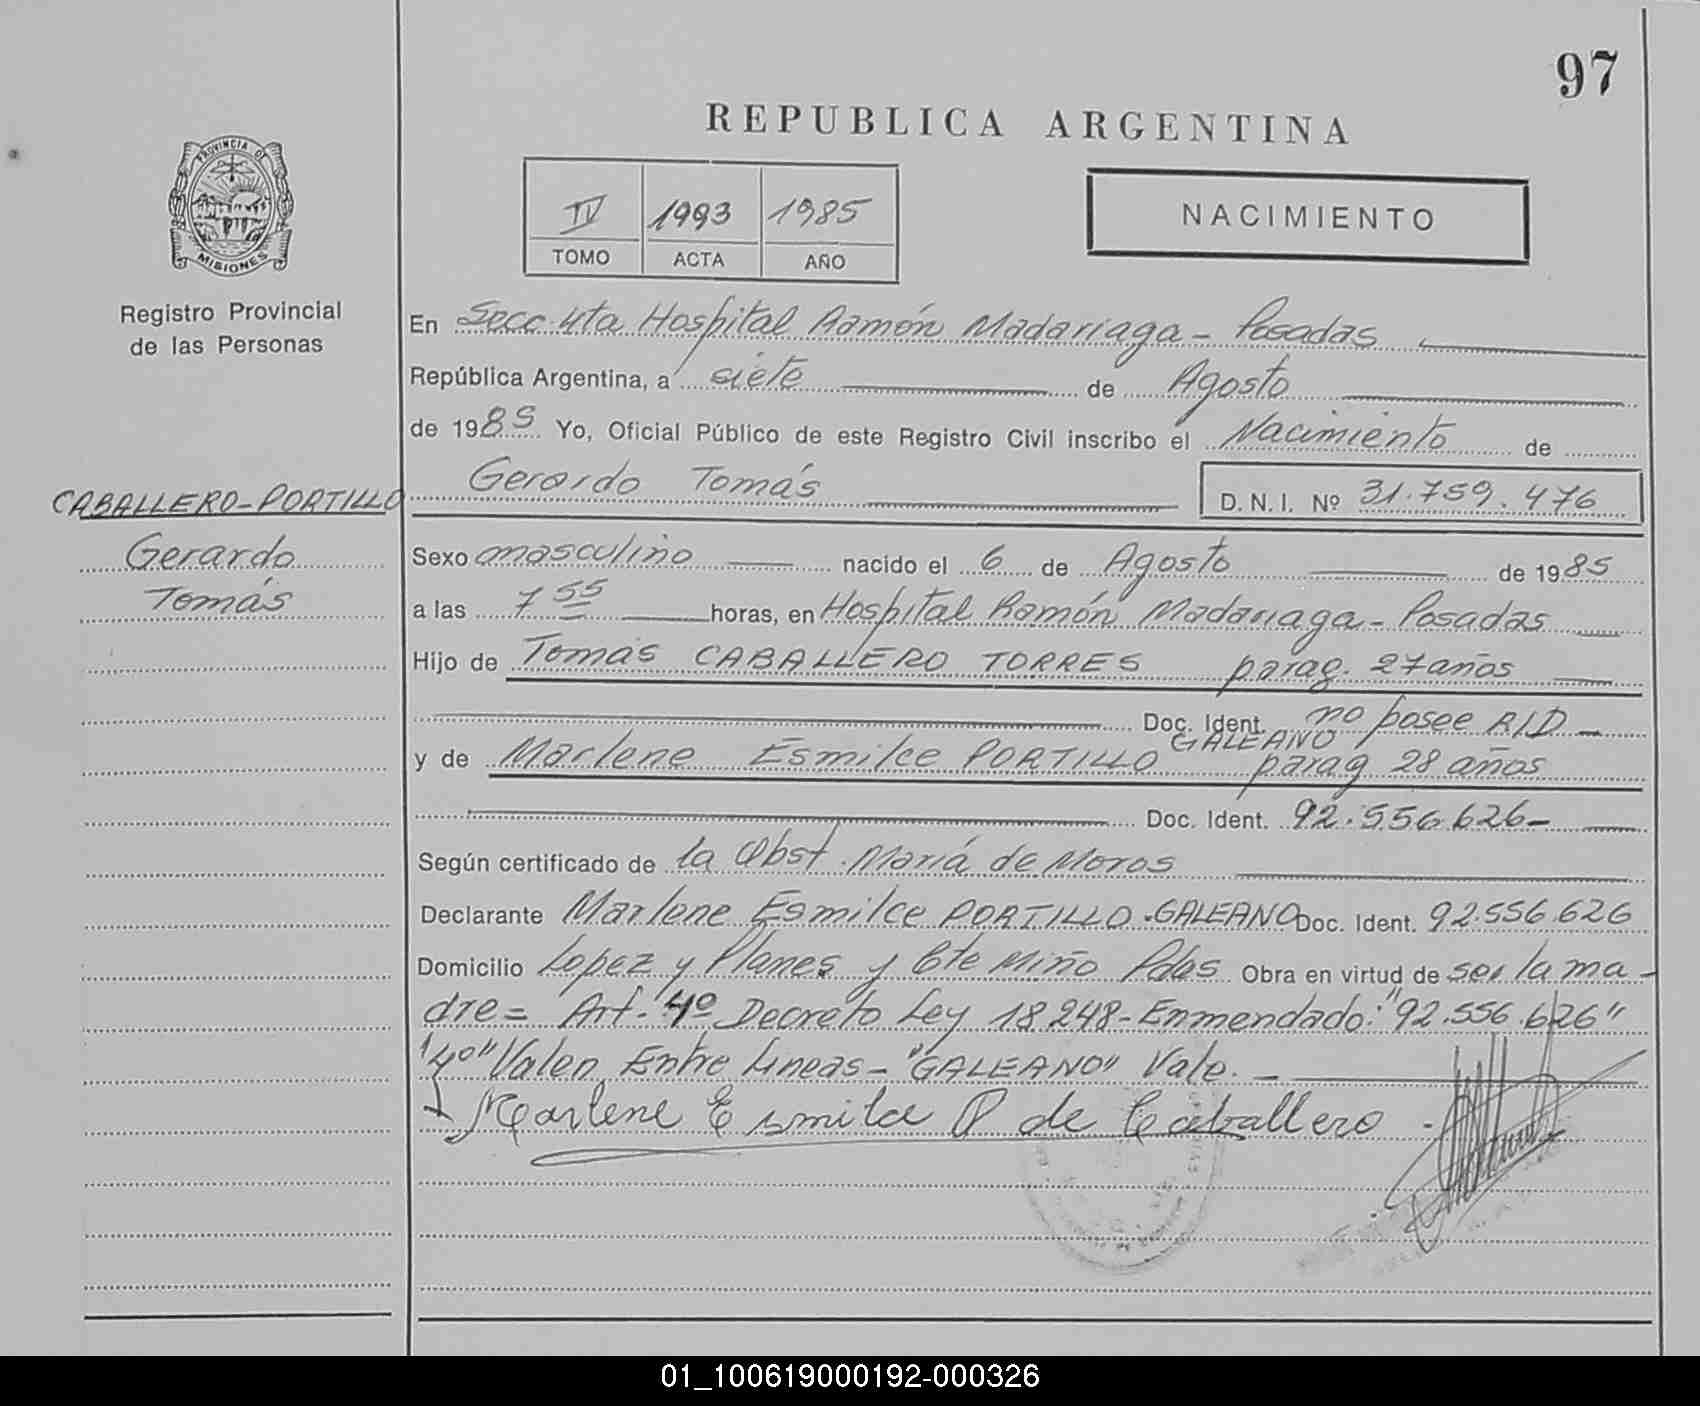 97
REPUBLICA ARGENTINA
PROVINCIA DE
MISIONES
IV 1993 1985
TOMO ACTA AÑO
NACIMIENTO
Registro Provincial
de las Personas
CABALLERO-PORTILLO
Gerardo
Tomás
En Secc. 4ta Hospital Ramón Madariaga - Posadas
República Argentina, a siete de Agosto
de 1985 Yo, Oficial Público de este Registro Civil inscribo el Nacimiento de
Gerardo Tomás D. N. I. Nº 31.759.476
Sexo masculino nacido el 6 de Agosto de 1985
a las 7 55 horas, en Hospital Ramón Madariaga - Posadas
Hijo de Tomás CABALLERO TORRES parag. 27 años
Doc. Ident. no posee RID
GALEANO
y de Marlene Esmilce PORTILLO parag 28 años
Doc. Ident. 92.556.626-
Según certificado de la Obst. María de Moros
Declarante Marlene Esmilce PORTILLO-GALEANO Doc. Ident. 92.556.626
Domicilio Lopez y Planes y Cte Miño Pdas. Obra en virtud de ser la ma-
dre = Art. 4º Decreto Ley 18248- Enmendado: "92.556.626"
"4º" Valen Entre Lineas - "GALEANO" Vale. -
Marlene Esmilce P de Caballero
01_100619000192-000326